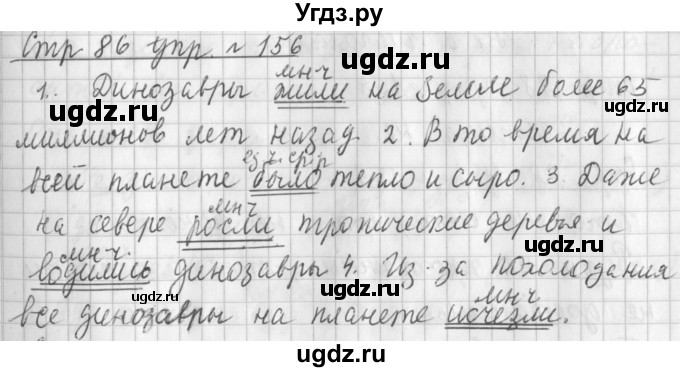 Угдз.ру
Стр 86 упр. № 156
мн ч
1. Динозавры жили на Земле более 65
миллионов лет назад. 2. В то время на
ед. ч. ср. р
всей планете было тепло и сыро. 3. Даже
мн ч
на севере росли тропические деревья и
мн ч.
водились динозавры 4. Из-за похолодания
мн ч
все динозавры на планете исчезли.
ugdz.ru
ugdz.ru
ugdz.ru
ugdz.ru
ugdz.ru
ugdz.ru
ugdz.ru
ugdz.ru
ugdz.ru
ugdz.ru
ugdz.ru
ugdz.ru